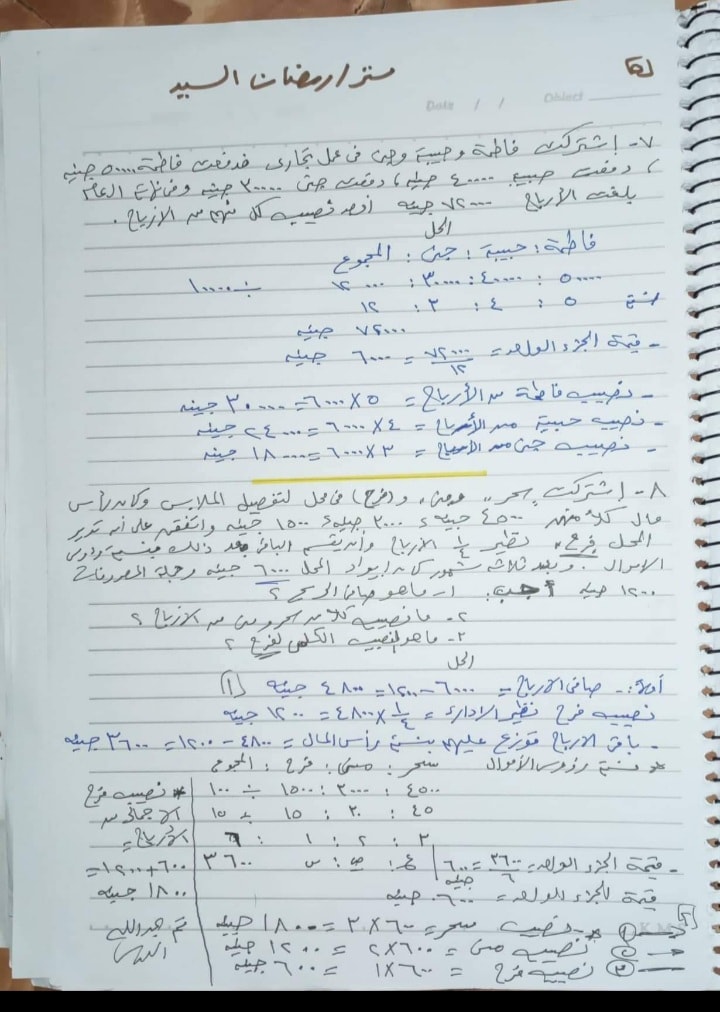 مستر/رمضان السيد
Date / / Object
٧- إشتركت فاطمة وحبيبة وجنى فى عمل تجارى فدفعت فاطمة ٥٠٠٠٠ جنيه
، دفعت حبيبة ٤٠٠٠٠ جنيه، دفعت جنى ٣٠٠٠٠ جنيه وفى نهاية العام
بلغت الأرباح ٧٢٠٠٠ جنيه أوجد نصيب كل منهم من الأرباح.
الحل
فاطمة : حبيبة : جنى : المجموع
٥٠٠٠٠ : ٤٠٠٠٠ : ٣٠٠٠٠ : ١٢٠٠٠٠ ÷ ١٠٠٠٠
٥ : ٤ : ٣ : ١٢
٧٢٠٠٠ جنيه
- قيمة الجزء الواحد = ٧٢٠٠٠/١٢ = ٦٠٠٠ جنيه
- نصيب فاطمة من الأرباح = ٥ × ٦٠٠٠ = ٣٠٠٠٠ جنيه
- نصيب حبيبة من الأرباح = ٤ × ٦٠٠٠ = ٢٤٠٠٠ جنيه
- نصيب جنى من الأرباح = ٣ × ٦٠٠٠ = ١٨٠٠٠ جنيه
٨- إشتركت "سحر" و"منى" و(فرح) فى محل لتفصيل الملابس وكان رأس
مال كلاً منهن ٤٥٠٠ جنيه، ٣٠٠٠ جنيه، ١٥٠٠ جنيه واتفقن على أن تدير
المحل فرح نظير ١/٤ الأرباح وأن يقسم الباقى بعد ذلك بنسبة رؤوس
الأموال. وبعد ثلاثة شهور كان إيراد المحل ٦٠٠٠ جنيه وجملة المصروفات
١٢٠٠ جنيه أجب: ١- ما هو صافى الربح ؟
٢- ما نصيب كلا من سحر ومنى من الأرباح ؟
٣- ما هو النصيب الكلى لفرح ؟
الحل
أولاً:- صافى الأرباح = ٦٠٠٠ - ١٢٠٠ = ٤٨٠٠ جنيه (١)
نصيب فرح نظير الإدارة = ١/٤ × ٤٨٠٠ = ١٢٠٠ جنيه
- باقى الأرباح توزع عليهم بنسبة رأس المال = ٤٨٠٠ - ١٢٠٠ = ٣٦٠٠ جنيه
* نسبة رؤوس الأموال سحر : منى : فرح : المجموع
٤٥٠٠ : ٣٠٠٠ : ١٥٠٠ ÷ ١٠٠
٤٥ : ٣٠ : ١٥ ÷ ١٥
٣ : ٢ : ١ : ٦
ع : ص : س ٣٦٠٠
- قيمة الجزء الواحد = ٣٦٠٠/٦ = ٦٠٠ جنيه
قيمة الجزء الواحد = ٦٠٠ جنيه
١ نصيب سحر = ٦٠٠ × ٣ = ١٨٠٠ جنيه
٢ نصيب منى = ٦٠٠ × ٢ = ١٢٠٠ جنيه
٣ نصيب فرح = ٦٠٠ × ١ = ٦٠٠ جنيه
* نصيب فرح
الإجمالى من
الأرباح =
٦٠٠ + ١٢٠٠ =
١٨٠٠ جنيه
تم بحمد الله